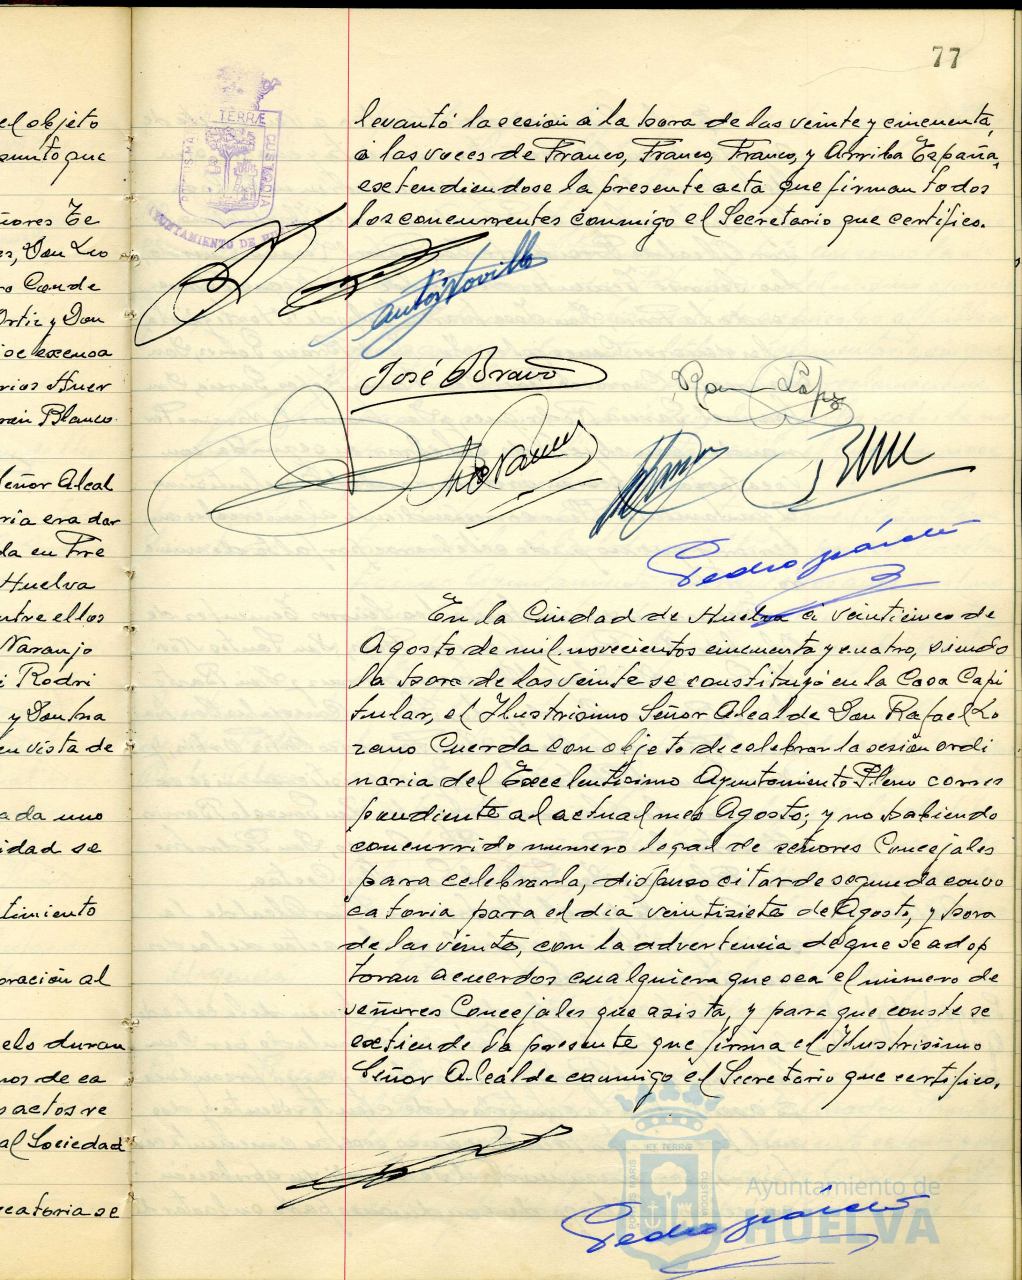 77
el objeto
punto que
ñores Te
es, Don Luo
ro Conde
Ortiz y Don
ioe excusa
rios Huer
ran Blanco.
Señor Alcal
ría era dar
da en Fre
Huelva
entre ellos
Naranjo
i Rodri
y Don
en vista de
ada uno
idad se
timiento
oración al
elo duran
nos de ca
s actos re
al Sociedad
catoria se
TERRÆ
CUSTODIA
AYUNTAMIENTO DE HU
levantó la sesión a la hora de las veinte y cincuenta,
a las voces de Franco, Franco, Franco, y Arriba España,
extendiendose la presente acta que firman todos
los concurrentes conmigo el Secretario que certifico.
Antº Novillo
José Bravo
Ramon López
Pedro García
En la Ciudad de Huelva a veinticinco de
Agosto de mil novecientos cincuenta y cuatro, siendo
la hora de las veinte se constituyó en la Casa Capi
tular, el Ilustrisimo Señor Alcalde Don Rafael Lo
zano Cuerda con objeto de celebrar la sesión ordi
naria del Excelentisimo Ayuntamiento Pleno corres
pondiente al actual mes Agosto; y no habiendo
concurrido numero legal de señores Concejales
para celebrarla, dispuso citar de segunda convo
catoria para el dia veintisiete de Agosto, y hora
de las veinte, con la advertencia de que se adop
toran acuerdos cualquiera que sea el numero de
señores Concejales que asista, y para que conste se
extiende la presente que firma el Ilustrisimo
Señor Alcalde conmigo el Secretario que certifico.
Pedro García
PORTUS MARIS ET TERRÆ CUSTODIA
Ayuntamiento de
HUELVA